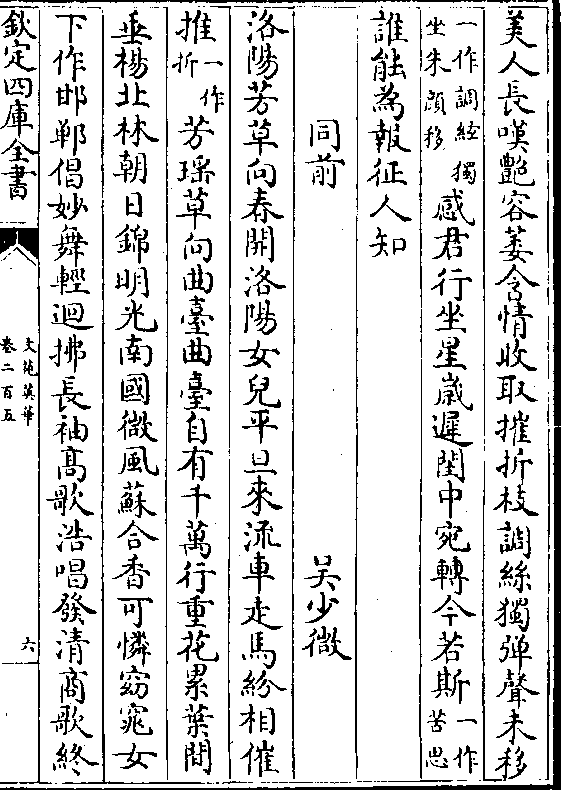 美人長嘆艶容萎含情收取摧折枝調絲獨弹聲未移
一作調絃獨坐朱顔移感君行坐星歳遲閨中宛轉今若斯一作苦思
誰能為報征人知
同前 吴少微
洛陽芳草向春開洛陽女兒平旦來流車走馬紛相催
推一作折芳瑶草向曲臺曲臺自有千萬行重花累葉間
垂楊北林朝日錦明光南國微風蘇合香可憐窈窕女
下作邯鄲倡妙舞輕迴拂長袖髙歌浩唱發清商歌終
欽定四庫全書
文苑英華
卷二百五
六